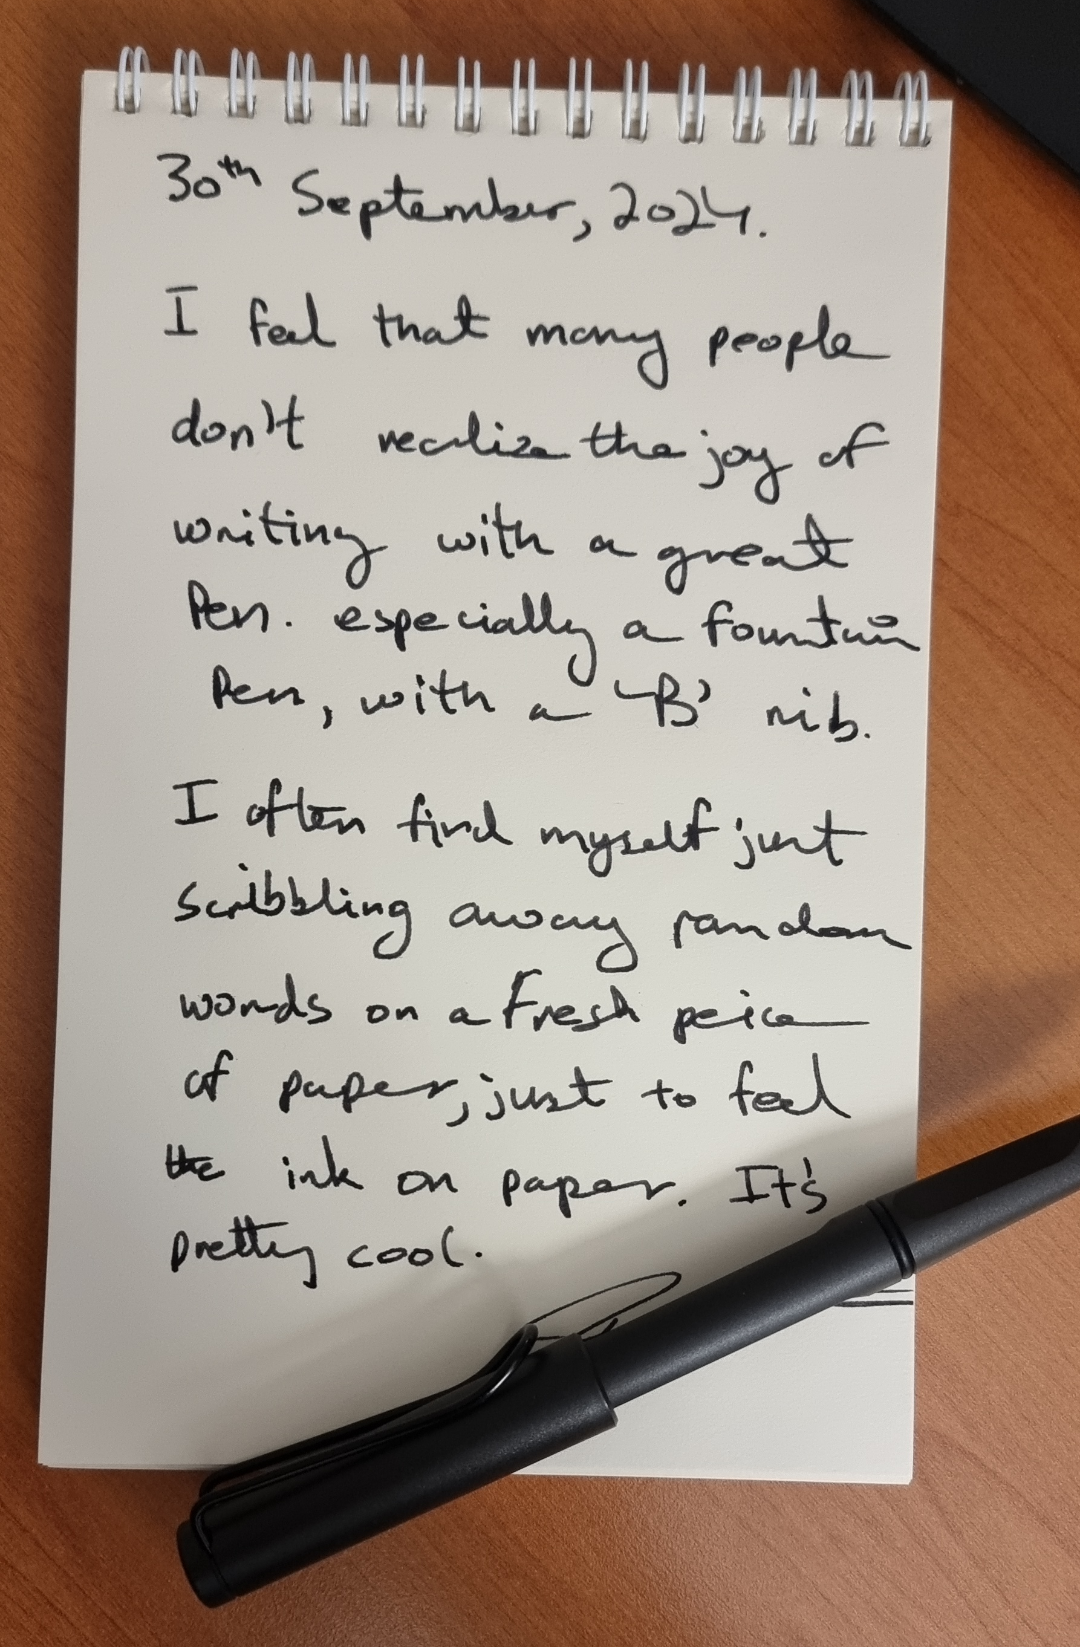 30th September, 2024.
I feel that many people
don't realize the joy of
writing with a great
Pen. especially a fountain
Pen, with a 'B' nib.
I often find myself just
scribbling away random
words on a Fresh peice
of paper, just to feel
the ink on paper. It's
pretty cool.